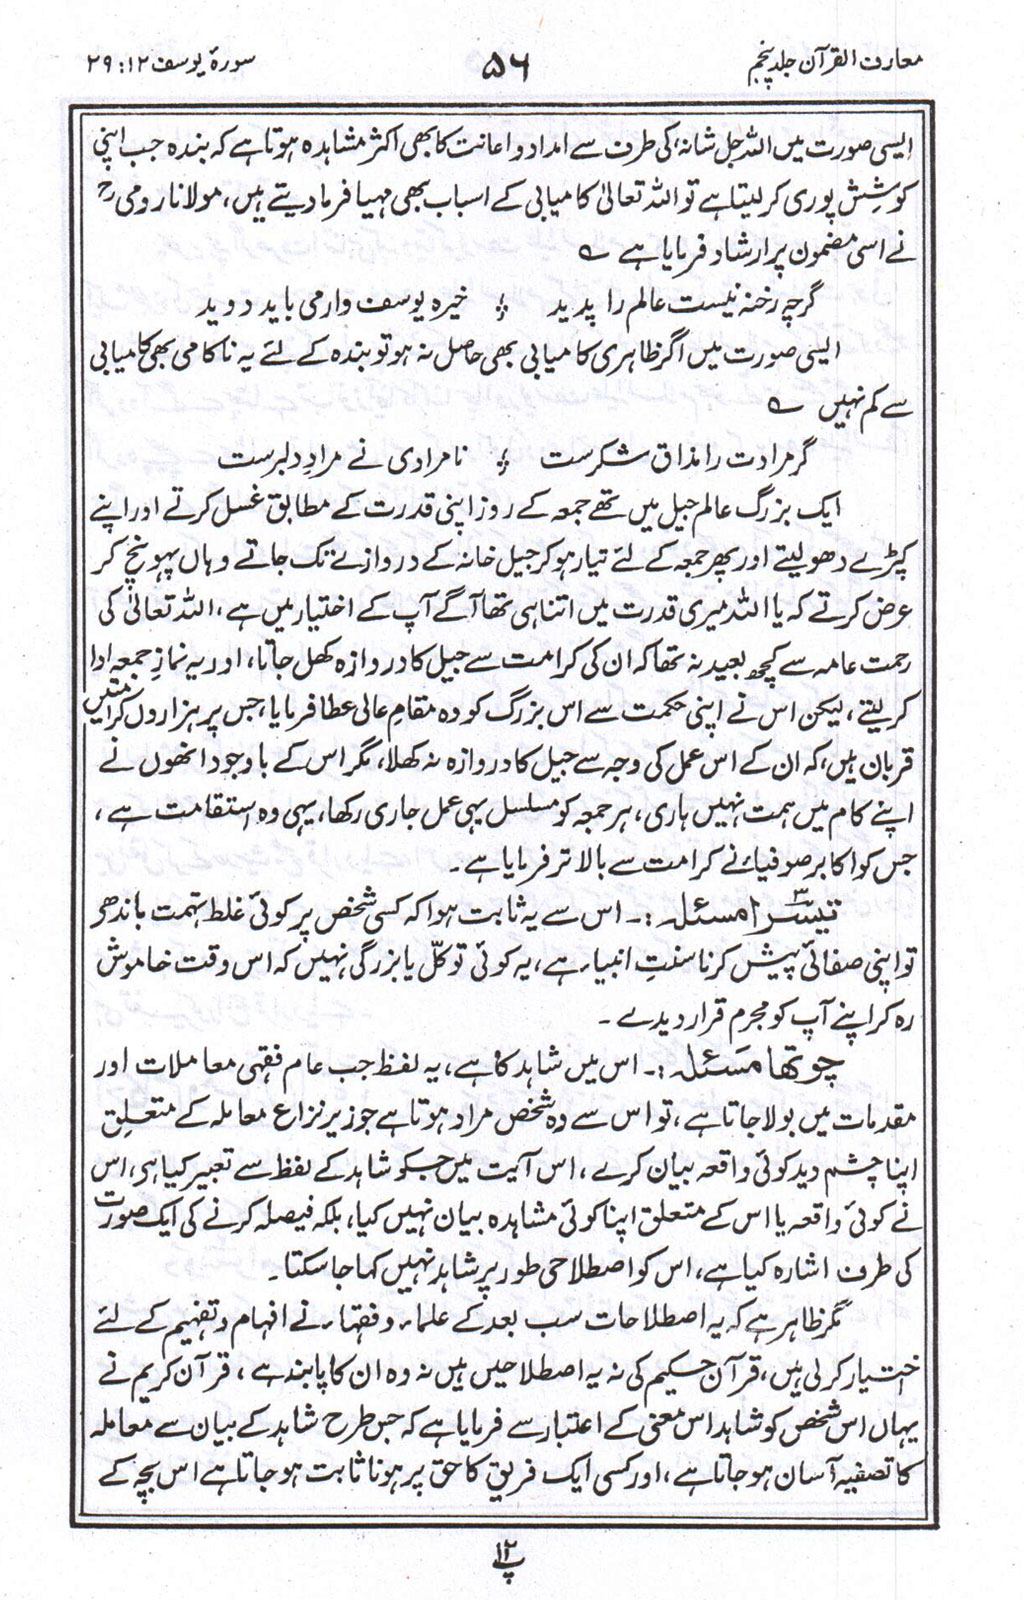 معارف القرآن جلد پنجم
۵۶
سورۂ یوسف ۱۲: ۲۹
ایسی صورت میں اللہ جل شانہٗ کی طرف سے امداد و اعانت کا بھی اکثر مشاہدہ ہوتا ہے کہ بندہ جب اپنی
کوشش پوری کر لیتا ہے تو اللہ تعالیٰ کامیابی کے اسباب بھی مہیا فرما دیتے ہیں، مولانا رومیؒ
نے اسی مضمون پر ارشاد فرمایا ہے ؎
گرچہ رخنہ نیست عالم را پدید ؛ خیرہ یوسف وار می باید دوید
ایسی صورت میں اگر ظاہری کامیابی بھی حاصل نہ ہو تو بندہ کے لئے یہ ناکامی بھی کامیابی
سے کم نہیں ؎
گر مرادت را مذاق شکرست ؛ نامرادی نے مرادِ دلبرست
ایک بزرگ عالم جیل میں تھے جمعہ کے روز اپنی قدرت کے مطابق غسل کرتے اور اپنے
کپڑے دھو لیتے اور پھر جمعہ کے لئے تیار ہو کر جیل خانہ کے دروازے تک جاتے وہاں پہونچ کر
عرض کرتے کہ یا اللہ میری قدرت میں اتنا ہی تھا آگے آپ کے اختیار میں ہے، اللہ تعالیٰ کی
رحمت عامہ سے کچھ بعید نہ تھا کہ ان کی کرامت سے جیل کا دروازہ کھل جاتا، اور یہ نمازِ جمعہ ادا
کر لیتے، لیکن اس نے اپنی حکمت سے اس بزرگ کو وہ مقامِ عالی عطا فرمایا، جس پر ہزاروں کرامتیں
قربان ہیں، کہ ان کے اس عمل کی وجہ سے جیل کا دروازہ نہ کھلا، مگر اس کے باوجود انھوں نے
اپنے کام میں ہمت نہیں ہاری، ہر جمعہ کو مسلسل یہی عمل جاری رکھا، یہی وہ استقامت ہے،
جس کو اکابر صوفیاء نے کرامت سے بالاتر فرمایا ہے۔
تیسرا مسئلہ:۔ اس سے یہ ثابت ہوا کہ کسی شخص پر کوئی غلط تہمت باندھے
تو اپنی صفائی پیش کرنا سنتِ انبیاء ہے، یہ کوئی توکّل یا بزرگی نہیں کہ اس وقت خاموش
رہ کر اپنے آپ کو مجرم قرار دیدے۔
چوتھا مسئلہ:۔ اس میں شاہد کا ہے، یہ لفظ جب عام فقہی معاملات اور
مقدمات میں بولا جاتا ہے، تو اس سے وہ شخص مراد ہوتا ہے جو زیرِ نزاع معاملہ کے متعلق
اپنا چشم دید کوئی واقعہ بیان کرے، اس آیت میں جسکو شاہد کے لفظ سے تعبیر کیا ہی، اس
نے کوئی واقعہ یا اس کے متعلق اپنا کوئی مشاہدہ بیان نہیں کیا، بلکہ فیصلہ کرنے کی ایک صورت
کی طرف اشارہ کیا ہے، اس کو اصطلاحی طور پر شاہد نہیں کہا جا سکتا۔
مگر ظاہر ہے کہ یہ اصطلاحات سب بعد کے علماء و فقہاء نے افہام و تفہیم کے لئے
اختیار کر لی ہیں، قرآن حکیم کی نہ یہ اصطلاحیں ہیں نہ وہ ان کا پابند ہے، قرآن کریم نے
یہاں اس شخص کو شاہد اس معنی کے اعتبار سے فرمایا ہے کہ جس طرح شاہد کے بیان سے معاملہ
کا تصفیہ آسان ہو جاتا ہے، اور کسی ایک فریق کا حق پر ہونا ثابت ہو جاتا ہے اس بچہ کے
پ۱۲